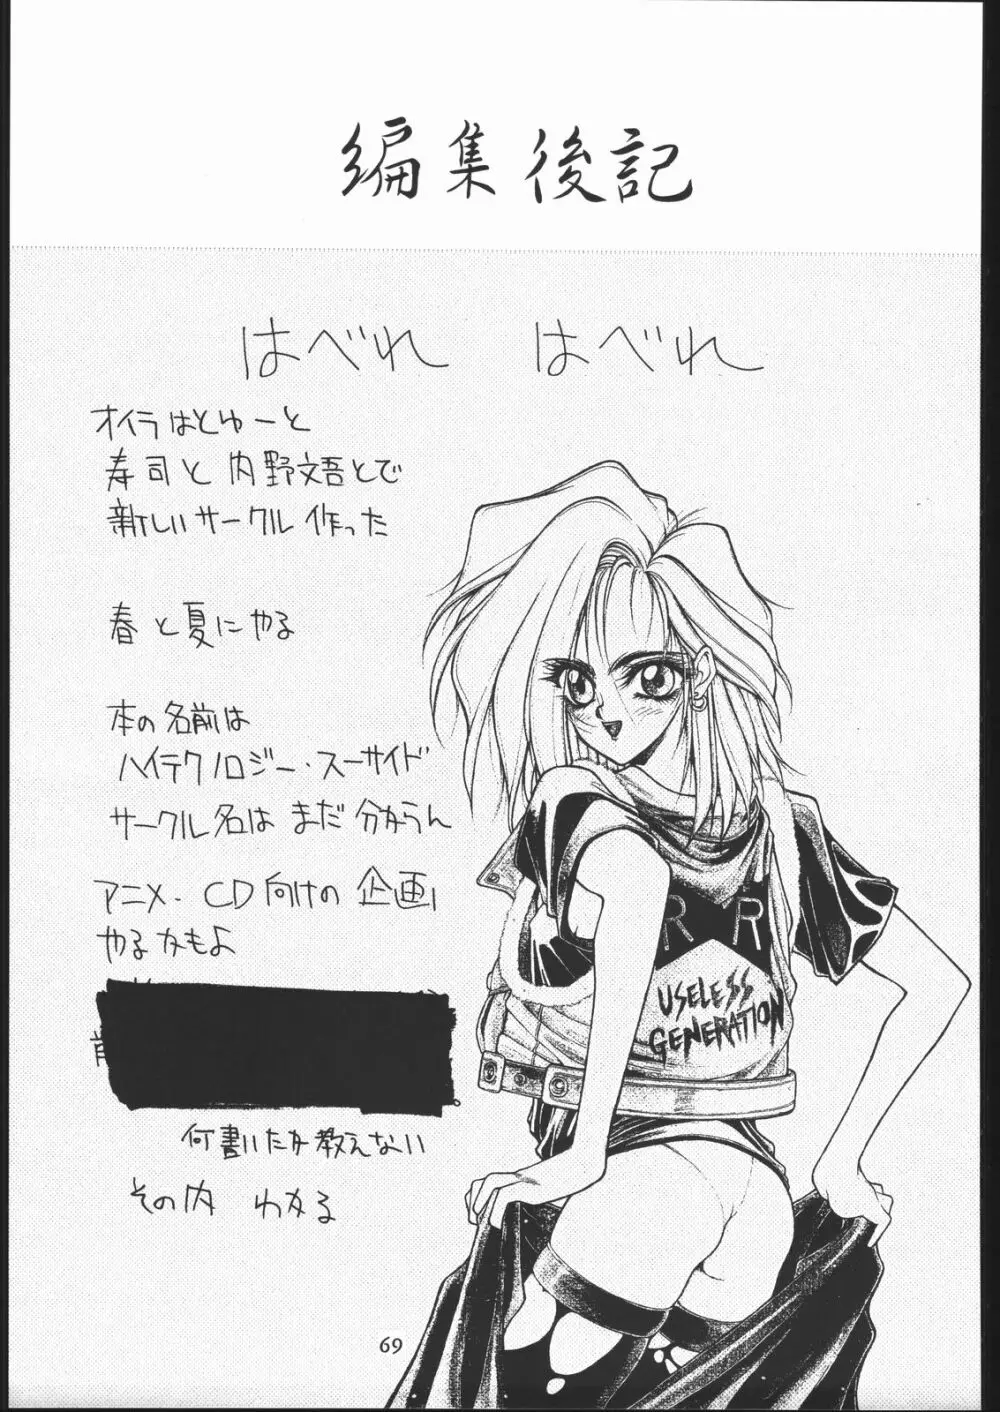 編集後記
はべれ はべれ
オイラはとゆーと
寿司と内野文吾とで
新しいサークル作った
春と夏にやる
本の名前は
ハイテクノロジー・スーサイド
サークル名はまだ分からん
アニメ・CD向けの企画
やるかもよ
何書いたか教えない
その内 わかる
R R
USELESS
GENERATION
69